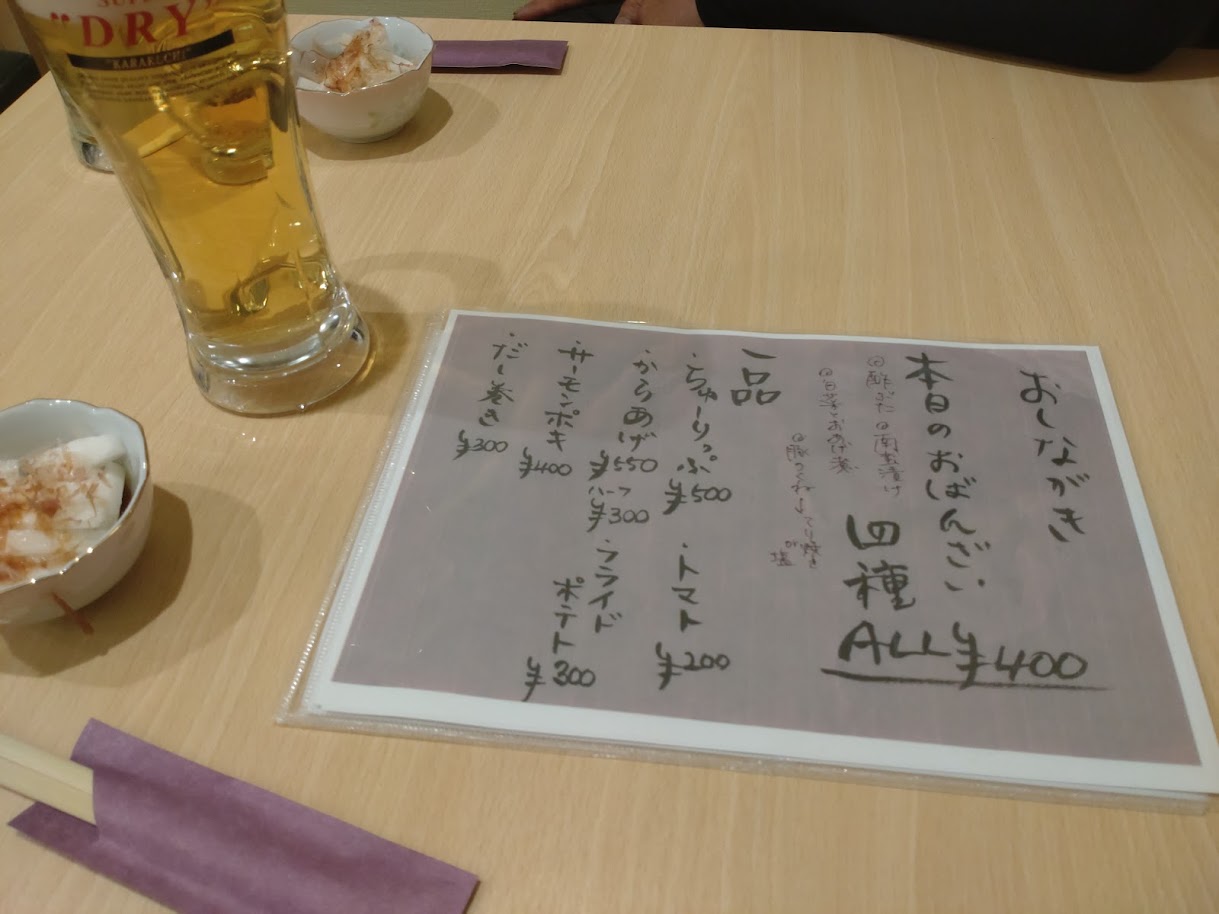 SUPER
"DRY"
"KARAKUCHI"
おしながき
本日のおばんざい
四種
ALL ¥400
酢ぶた
南蛮漬け
白菜とおあげ煮
豚つくね
照り焼き
か
塩
一品
・ちゅーりっぷ ¥500
・トマト ¥200
・からあげ ¥550
ハーフ ¥300
・フライドポテト ¥300
・サーモンポキ ¥400
・だし巻き ¥300